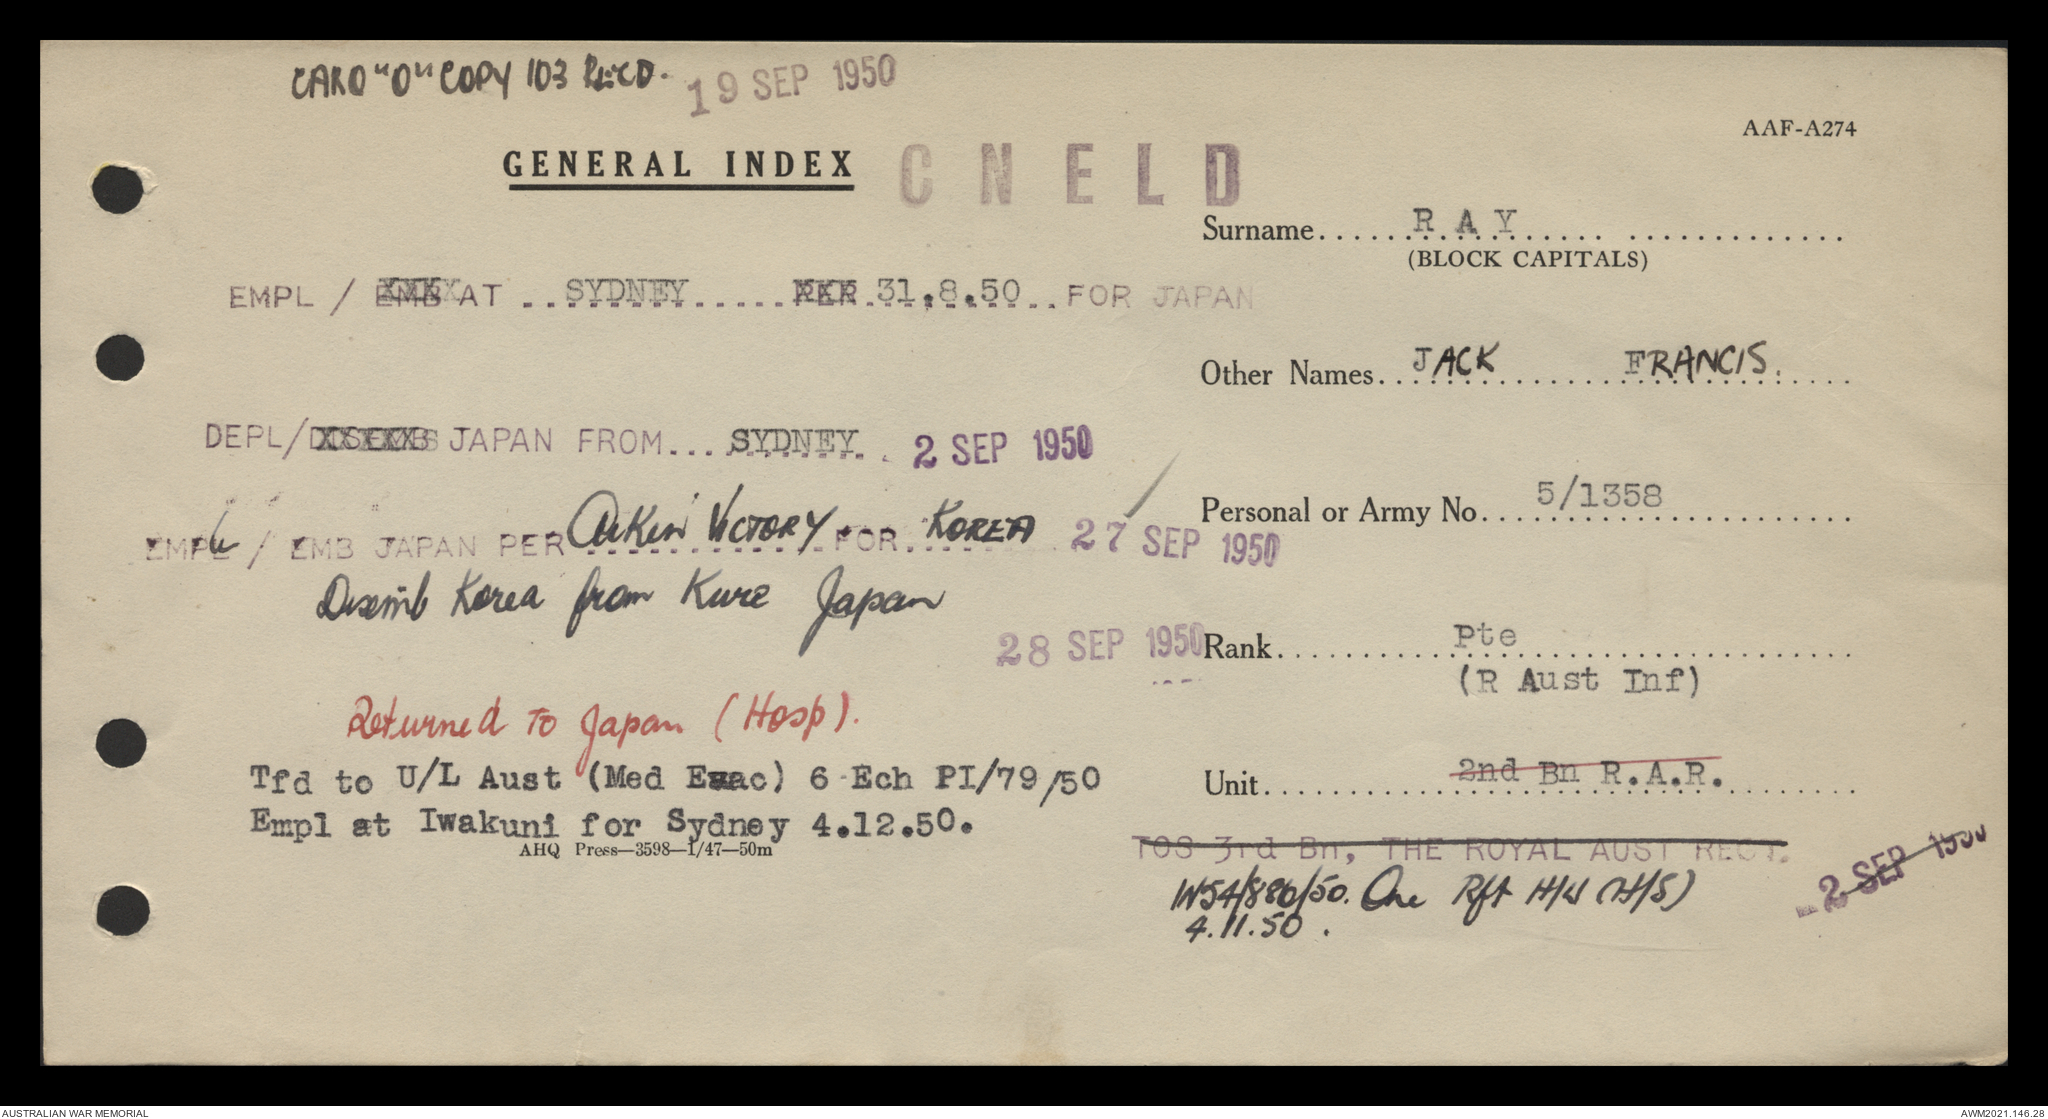 CARO "O" COPY 103 REC'D. 19 SEP 1950
AAF-A274
GENERAL INDEX
CNELD
Surname RAY
(BLOCK CAPITALS)
EMPL / EMB AT SYDNEY PER 31.8.50 FOR JAPAN
Other Names JACK FRANCIS.
DEPL/DISEMB JAPAN FROM SYDNEY 2 SEP 1950
Personal or Army No. 5/1358
EMPL / EMB JAPAN PER Aiken VICTORY FOR KOREA 27 SEP 1950
Disemb Korea from Kure Japan
28 SEP 1950
Rank Pte
(R Aust Inf)
Returned to Japan (Hosp).
Tfd to U/L Aust (Med Evac) 6 Ech PI/79/50
Unit 2nd Bn R.A.R.
Empl at Iwakuni for Sydney 4.12.50.
AHQ Press—3598—1/47—50m
TOS 3rd Bn, THE ROYAL AUST REGT. -2 SEP 1950
IN54/880/50. One Rft H/W (H/S)
4.11.50.
AUSTRALIAN WAR MEMORIAL
AWM2021.146.28